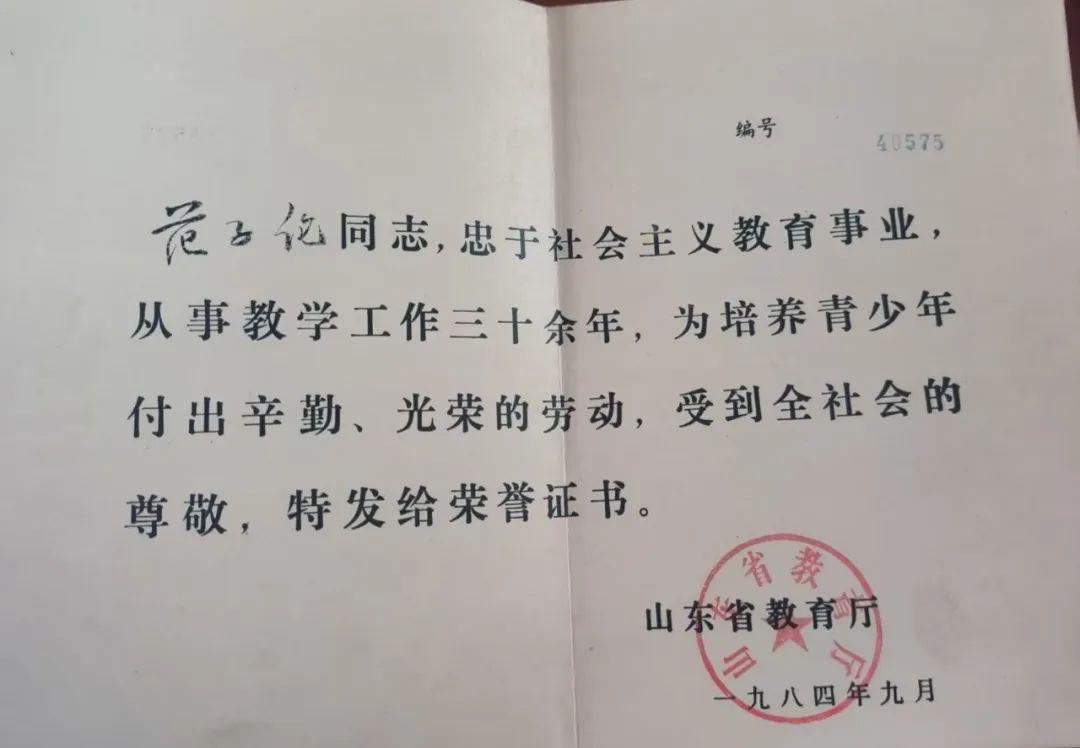 编号 40575
范子伦同志，忠于社会主义教育事业，
从事教学工作三十余年，为培养青少年
付出辛勤、光荣的劳动，受到全社会的
尊敬，特发给荣誉证书。
山东省教育厅
山东省教育厅
一九八四年九月